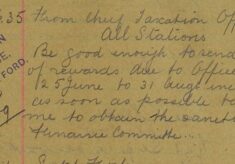 .35 From Chief Taxation Off
All Stations
Be good enough to send
of rewards due to Office
125 June to 31 Aug in
as soon as possible to
me to obtain the sanct
Finance Committe...
N
E.
FORD.